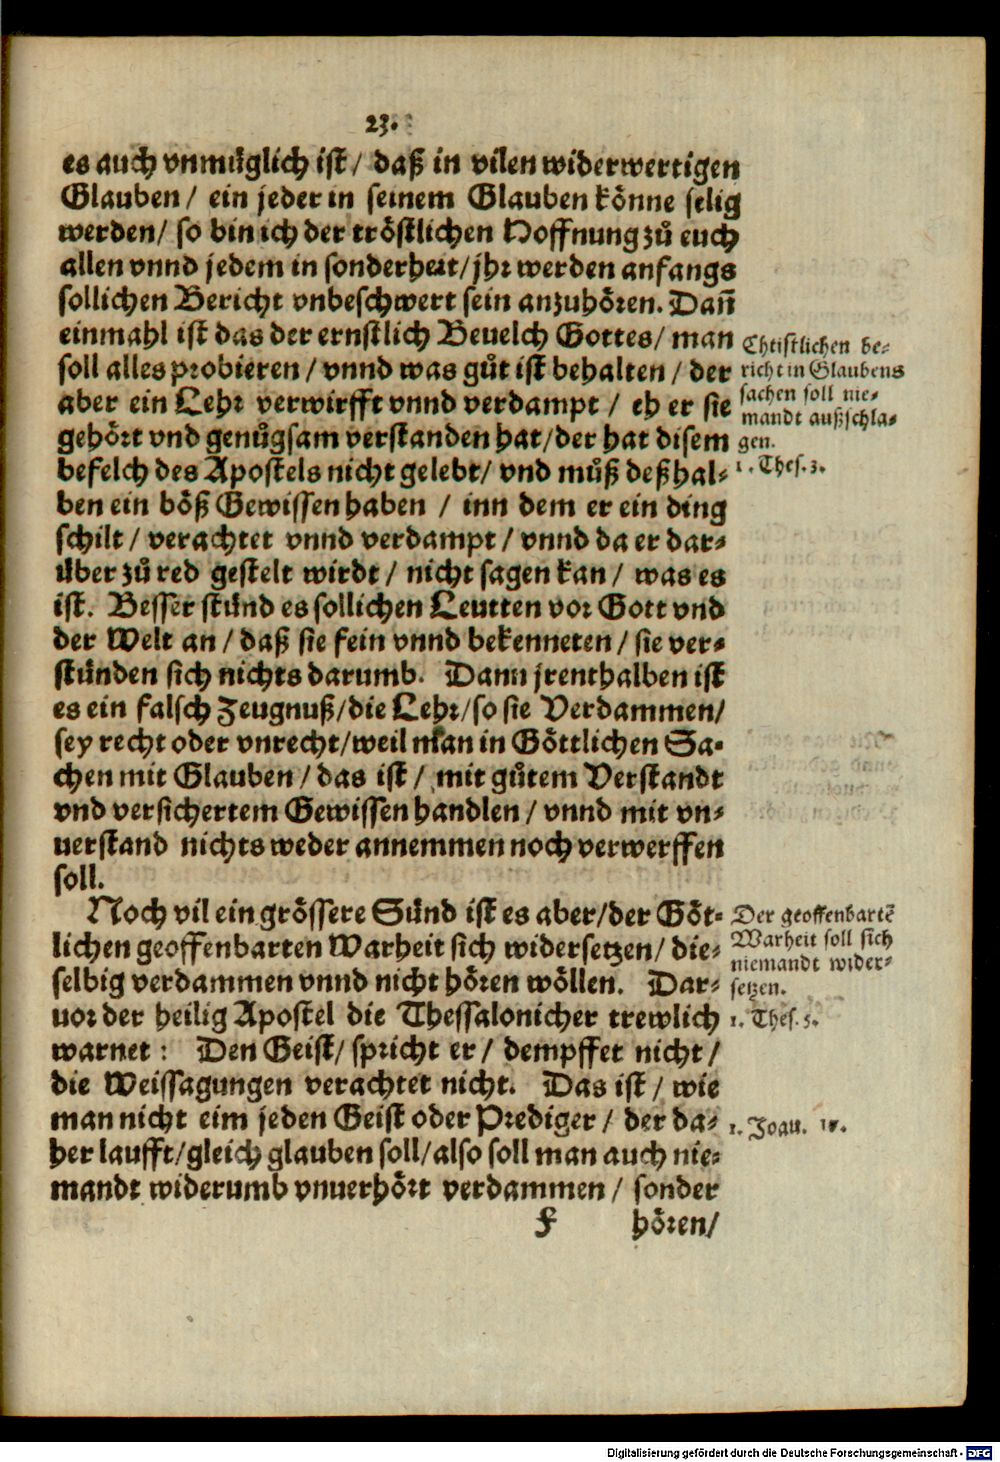 23.
es auch vnmüglich ist/ daß in vilen widerwertigen
Glauben/ ein jeder in seinem Glauben könne selig
werden/ so bin ich der tröstlichen Hoffnung zů euch
allen vnnd jedem in sonderheit/ jhr werden anfangs
sollichen Bericht vnbeschwert sein anzuhören. Dañ
einmahl ist das der ernstlich Beuelch Gottes/ man
soll alles probieren/ vnnd was gůt ist behalten/ der
aber ein Lehr verwirfft vnnd verdampt/ eh er sie
gehört vnd genůgsam verstanden hat/ der hat disem
befelch des Apostels nicht gelebt/ vnd můß deßhal-
ben ein böß Gewissen haben / inn dem er ein ding
schilt/ verachtet vnnd verdampt/ vnnd da er dar-
über zů red gestelt wirdt/ nicht sagen kan/ was es
ist. Besser stünd es sollichen Leutten vor Gott vnd
der Welt an/ daß sie fein vnnd bekenneten/ sie ver-
stünden sich nichts darumb. Dann jrenthalben ist
es ein falsch Zeugnuß/ die Lehr/ so sie Verdammen/
sey recht oder vnrecht/ weil man in Göttlichen Sa-
chen mit Glauben/ das ist/ mit gůtem Verstandt
vnd versichertem Gewissen handlen/ vnnd mit vn-
uerstand nichts weder annemmen noch verwerffen
soll.
Christlichen be-
richt in Glaubens
sachen soll nie-
mandt außschla-
gen.
1. Thes. 3.
Noch vil ein grössere Sünd ist es aber/ der Göt-
lichen geoffenbarten Warheit sich widersetzen/ die-
selbig verdammen vnnd nicht hören wöllen. Dar-
uor der heilig Apostel die Thessalonicher trewlich
warnet: Den Geist/ spricht er/ dempffet nicht/
die Weissagungen verachtet nicht. Das ist/ wie
man nicht eim jeden Geist oder Prediger/ der da-
her laufft/ gleich glauben soll/ also soll man auch nie-
mandt widerumb vnuerhört verdammen/ sonder
Der geoffenbartē
Warheit soll sich
niemandt wider-
setzen.
1. Thes. 5.
1. Joan.
F hören/
Digitalisierung gefördert durch die Deutsche Forschungsgemeinschaft - DFG